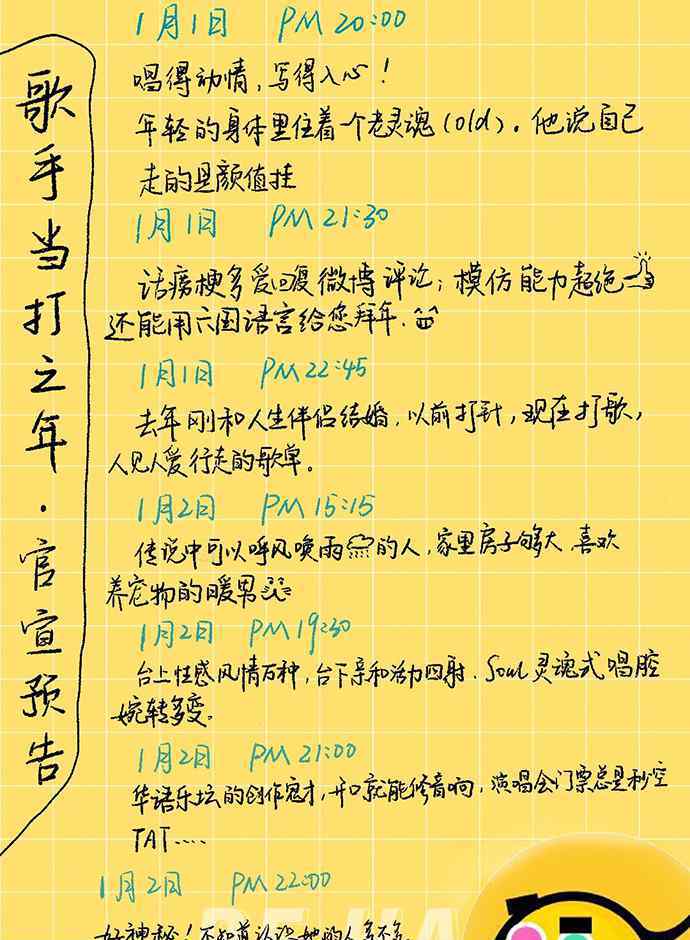 歌手当打之年·官宣预告
1月1日 PM 20:00
唱得动情，写得入心！
年轻的身体里住着一个老灵魂(old)。他说自己
走的是颜值挂
1月1日 PM 21:30
话痨梗多爱回复微博评论；模仿能力超绝
还能用六国语言给您拜年.
1月1日 PM 22:45
去年刚和人生伴侣结婚，以前打针，现在打歌，
人见人爱行走的歌单。
1月2日 PM 15:15
传说中可以呼风唤雨的人，家里房子够大 喜欢
养宠物的暖男
1月2日 PM 19:30
台上性感风情万种，台下亲和活力四射．Soul灵魂式唱腔
婉转多变。
1月2日 PM 21:00
华语乐坛的创作鬼才，开口就能修音响，演唱会门票总是秒空
TAT.....
1月2日 PM 22:00
好神秘！不知道认识她的人多不多